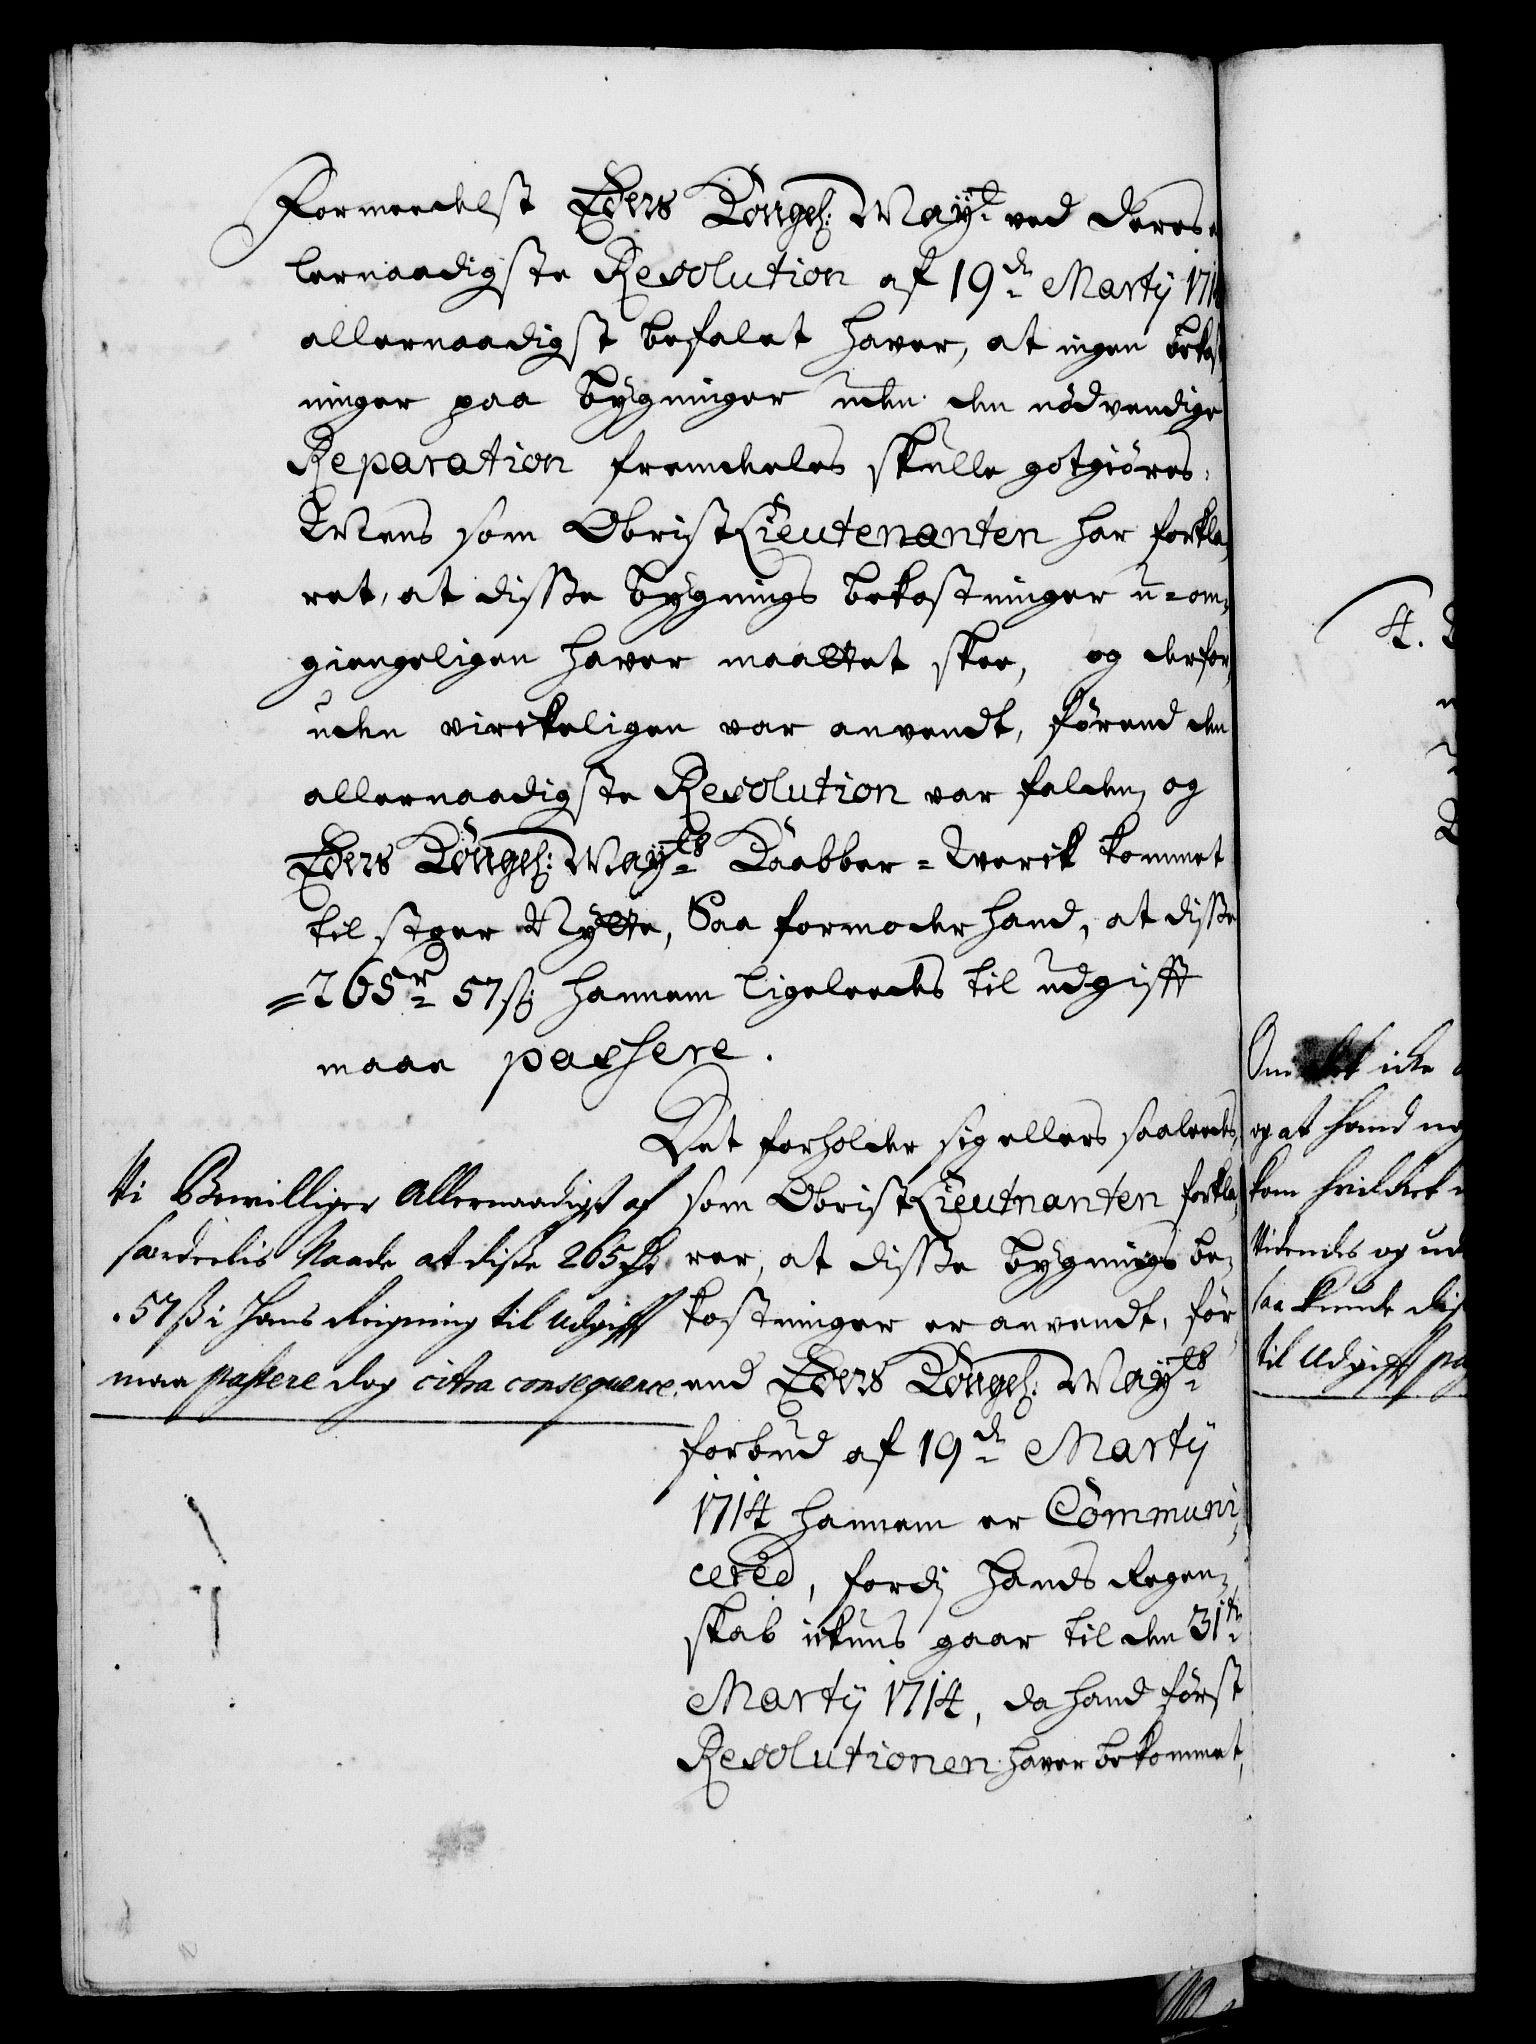 Formeedelst Eders Kongel: Mayt. ved deres
lernaadigste Resolution af 19de Martij 171
allernaadigst befalet haver, at ingen bekost
ninger paa bygninger uden den nödvendige
Reparation fremdeeles skulle gotgiöres,
Mens som ObristLieutenanten har forkla,
ret, at disse bygnings bekostninger u-om,
giengeligen haver maattet skee, og derfor,
uden virckeligen var anvendt, förend den
allernaadigste Resolution var falden, og
Eders Kongel: Mayts Kaabber-Werck kommet
til stoer Nytte, Saa formoder hand, at disse
265r 57ß hannem ligeleedes til udgifft
maae passere.
Det forholder sig ellers saaleedes,
som ObristLieutnanten forkla,
rer, at disse bygnings be,
kostninger er anvendt, för
end Eders Kongel: Mayts
forbud af 19de Martij
1714 hannem er Communi,
cered, fordj hands Regen,
skab ickuns gaar til den 31te
Martij 1714, da hand först
Resolutionen haver bekommet,
Vi Bewilliger Allernaadigst af
særdeelis Naade at disse 265 rd
57 ß i Hans Reigning til udgifft
maa passere dog citra consequence.
4.
Om det icke
og at hand
kom hvilcket
tidendes og ud
saa kunde
til udgifft pa